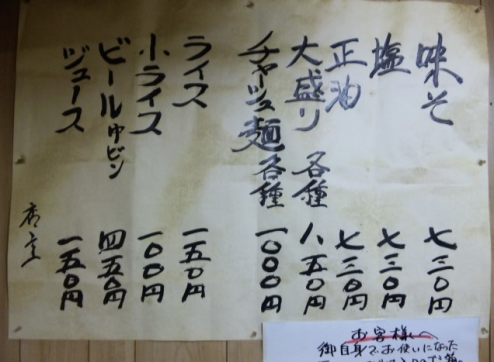 味そ 七三〇円
塩 七三〇円
正油 七三〇円
大盛り 各種 八五〇円
チャーシュー麺 各種 一〇〇〇円
ライス 一五〇円
小ライス 一〇〇円
ビール中ビン 四五〇円
ジュース 一五〇円
店主
お客様へ
御自身でお使いになった